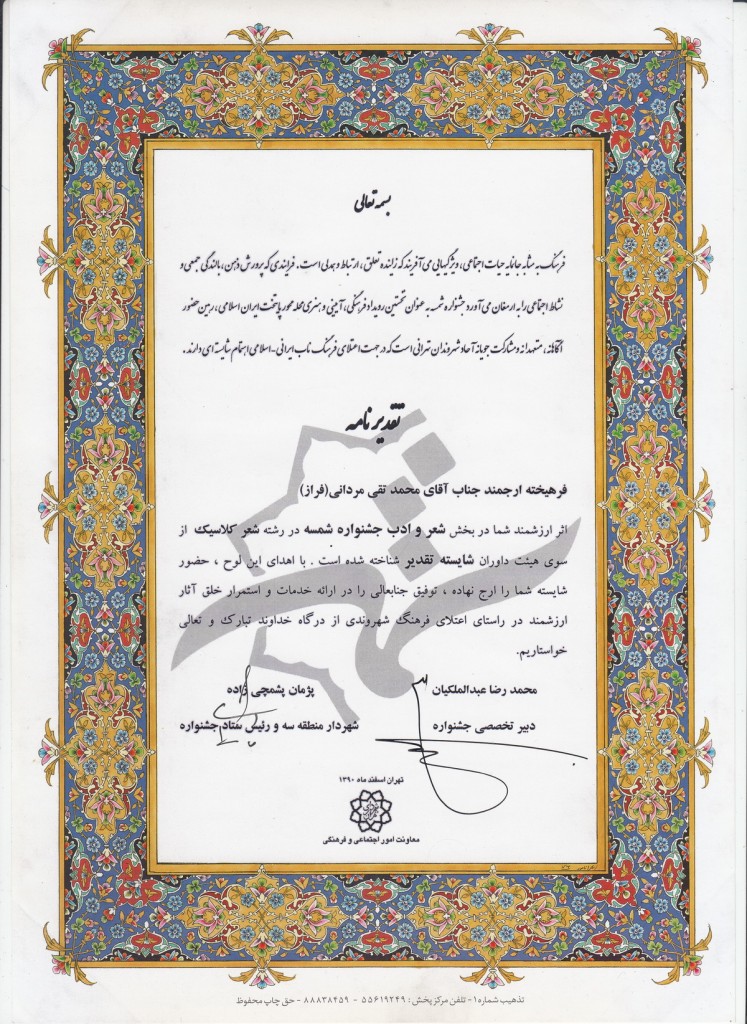 بسمه تعالی
فرهنگ به مثابه جانمایه حیات اجتماعی، ویژگیهایی می آفریند که زاینده تعلق، ارتباط و همدلی است. فرایندی که پرورش ذهن، بالندگی جمعی و
نشاط اجتماعی را به ارمغان می آورد جشنواره شمسه به عنوان نخستین رویداد فرهنگی، آیینی و هنری محله محور پایتخت ایران اسلامی، رهین حضور
آگاهانه، متعهدانه و مشارکت جویانه آحاد شهروندان تهرانی است که در جهت اعتلای فرهنگ ناب ایرانی - اسلامی اهتمام شایسته ای دارند.
تقدیر نامه
فرهیخته ارجمند جناب آقای محمد تقی مردانی(فراز)
اثر ارزشمند شما در بخش شعر و ادب جشنواره شمسه در رشته شعر کلاسیک از
سوی هیئت داوران شایسته تقدیر شناخته شده است . با اهدای این لوح ، حضور
شایسته شما را ارج نهاده ، توفیق جنابعالی را در ارائه خدمات و استمرار خلق آثار
ارزشمند در راستای اعتلای فرهنگ شهروندی از درگاه خداوند تبارک و تعالی
خواستاریم.
محمد رضا عبدالملکیان
دبیر تخصصی جشنواره
پژمان پشمچی زاده
شهردار منطقه سه و رئیس ستاد جشنواره
تهران اسفند ماه ۱۳۹۰
معاونت امور اجتماعی و فرهنگی
تذهیب شماره ۱- تلفن مرکز پخش : ۵۵۶۱۹۲۴۹ - ۸۸۸۳۸۴۵۹ - حق چاپ محفوظ